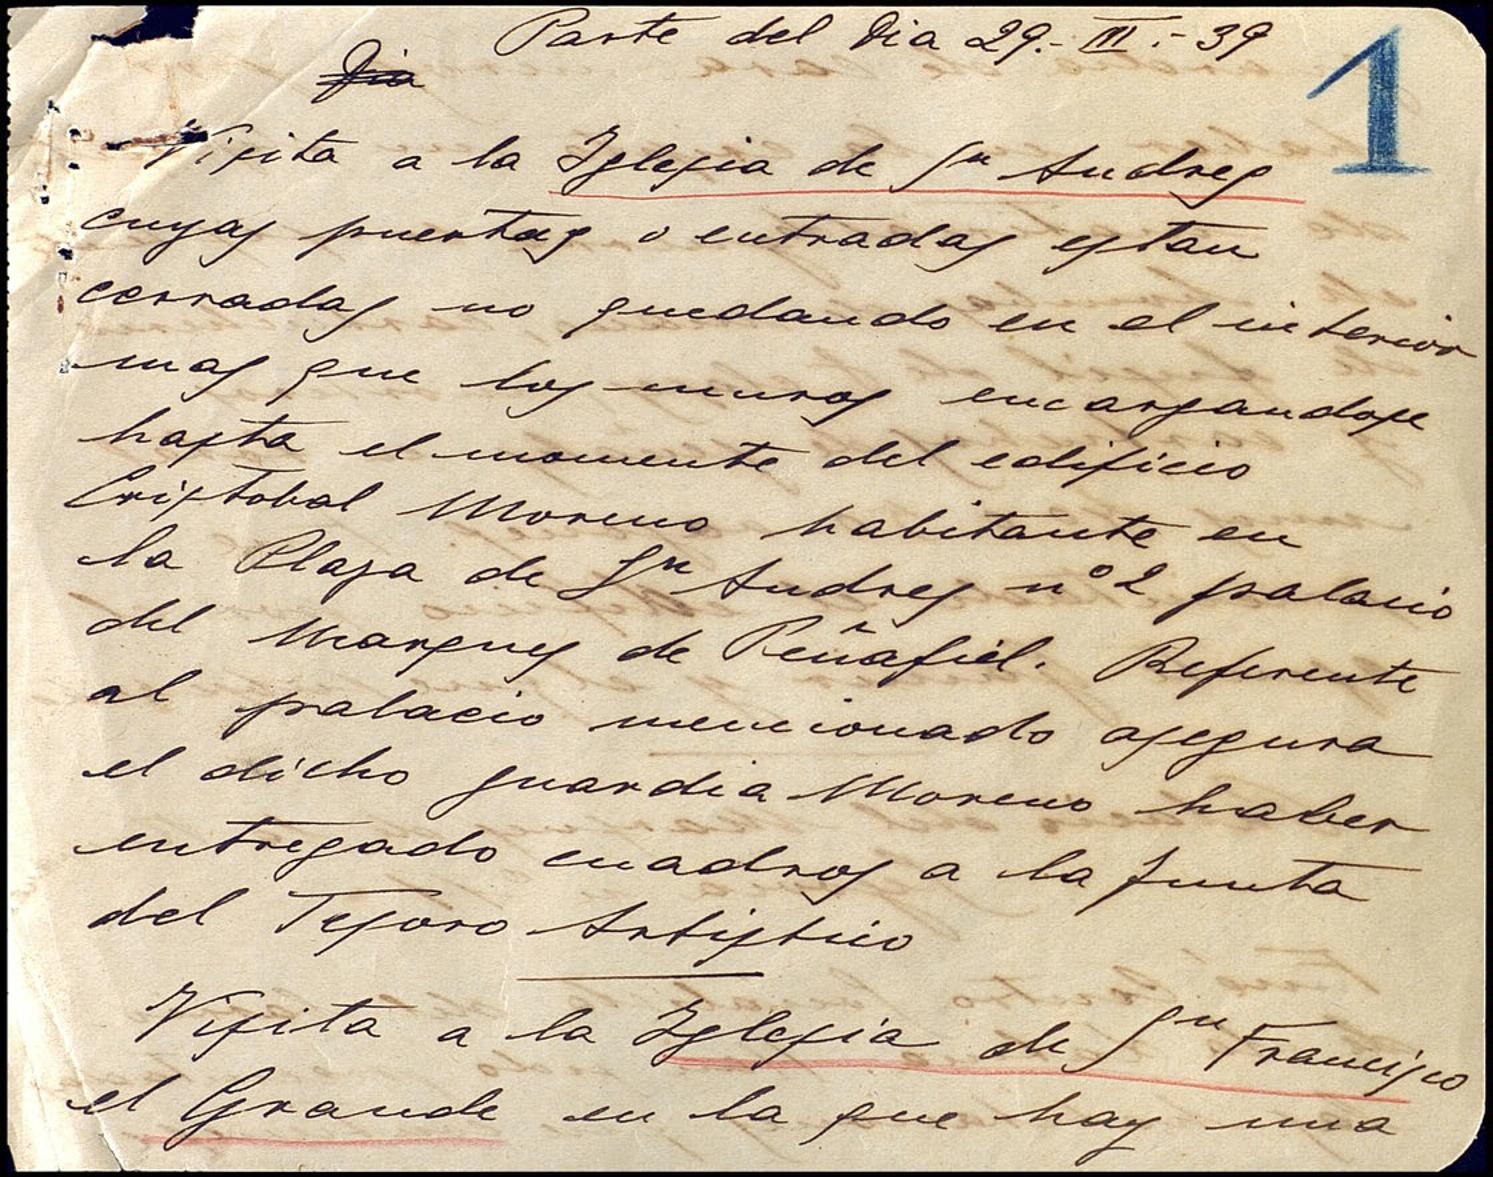 Parte del Dia 29.- III.- 39
1
Dia
Visita a la Iglesia de Sn Andres
cuyas puertas o entradas estan
cerradas no quedando en el interior
mas que los muros encargandose
hasta el momente del edificio
Cristobal Moreno habitante en
la Plaza de Sn Andres nº 2 palacio
del Marques de Peñafiel. Referente
al palacio mencionado asegura
el dicho guardia Moreno haber
entregado cuadros a la Junta
del Tesoro Artistico
Visita a la Iglesia de Sn Francisco
el Grande en la que hay una